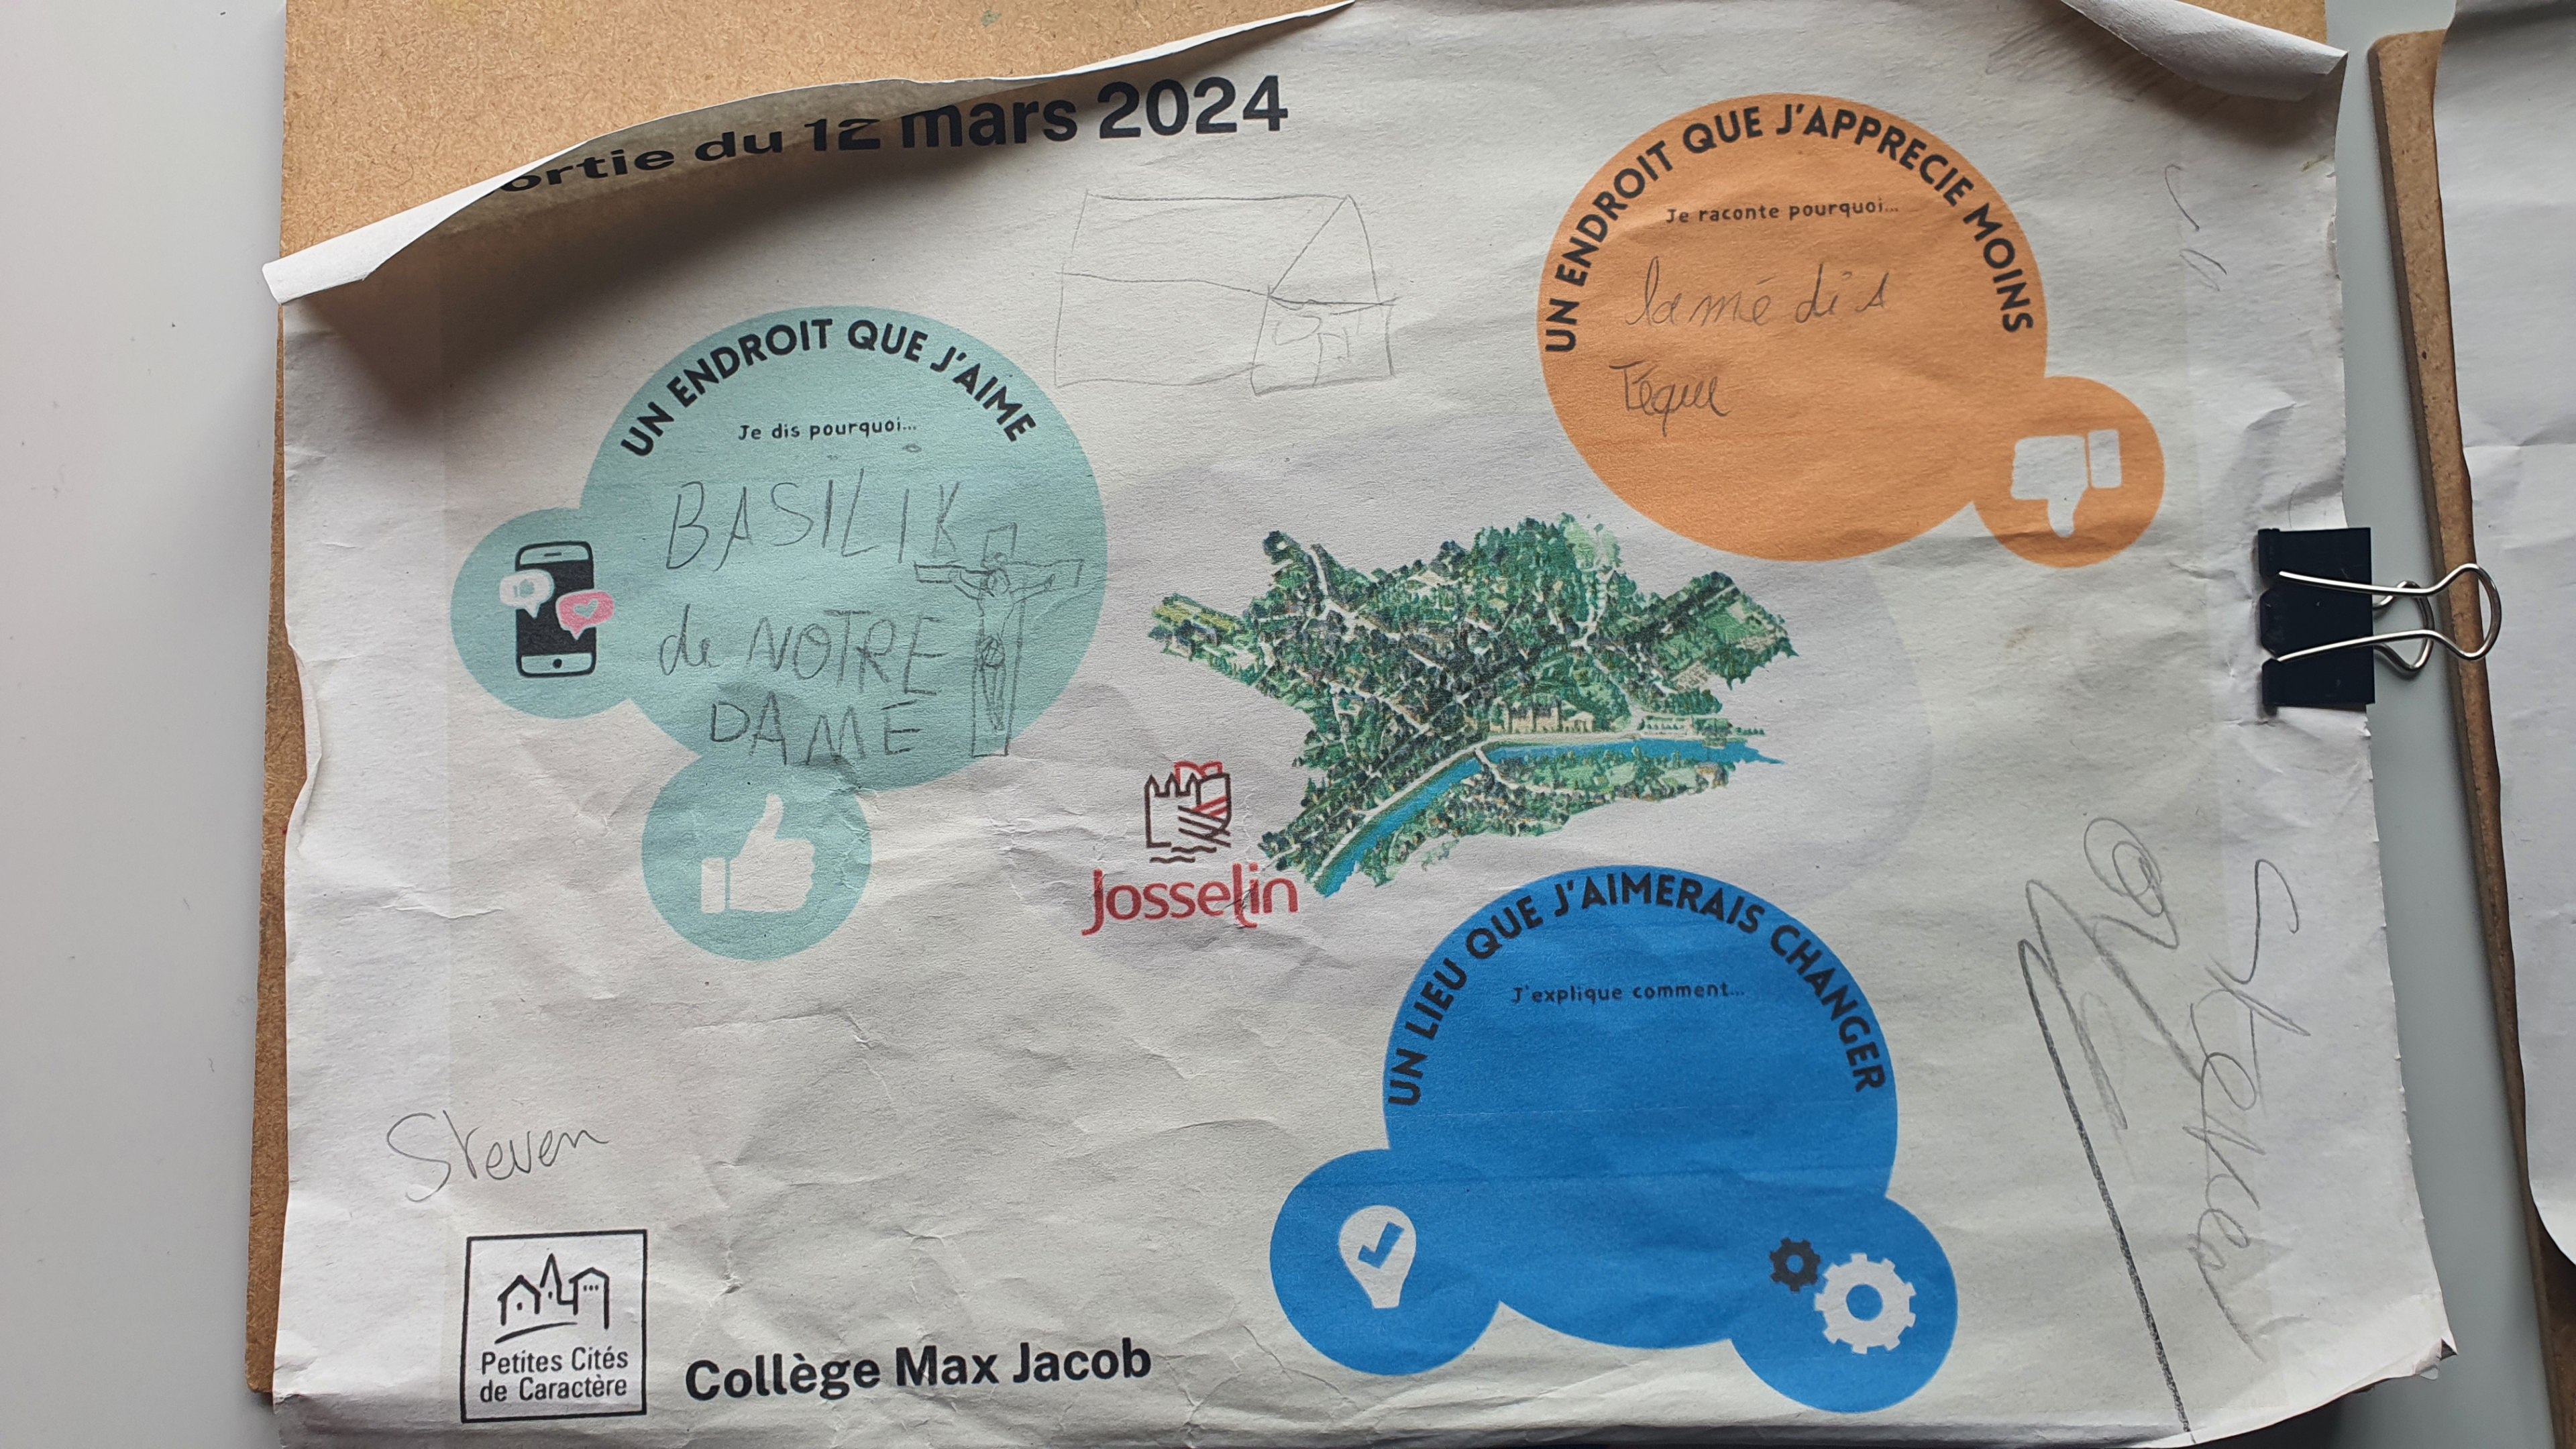 ortie du 12 mars 2024
UN ENDROIT QUE J'APPRECIE MOINS
Je raconte pourquoi...
la mé di A
Téque
UN ENDROIT QUE J'AIME
Je dis pourquoi...
BASILIK
de NOTRE
DAME
Josselin
UN LIEU QUE J'AIMERAIS CHANGER
J'explique comment...
Steven
Steven
Petites Cités
de Caractère
Collège Max Jacob